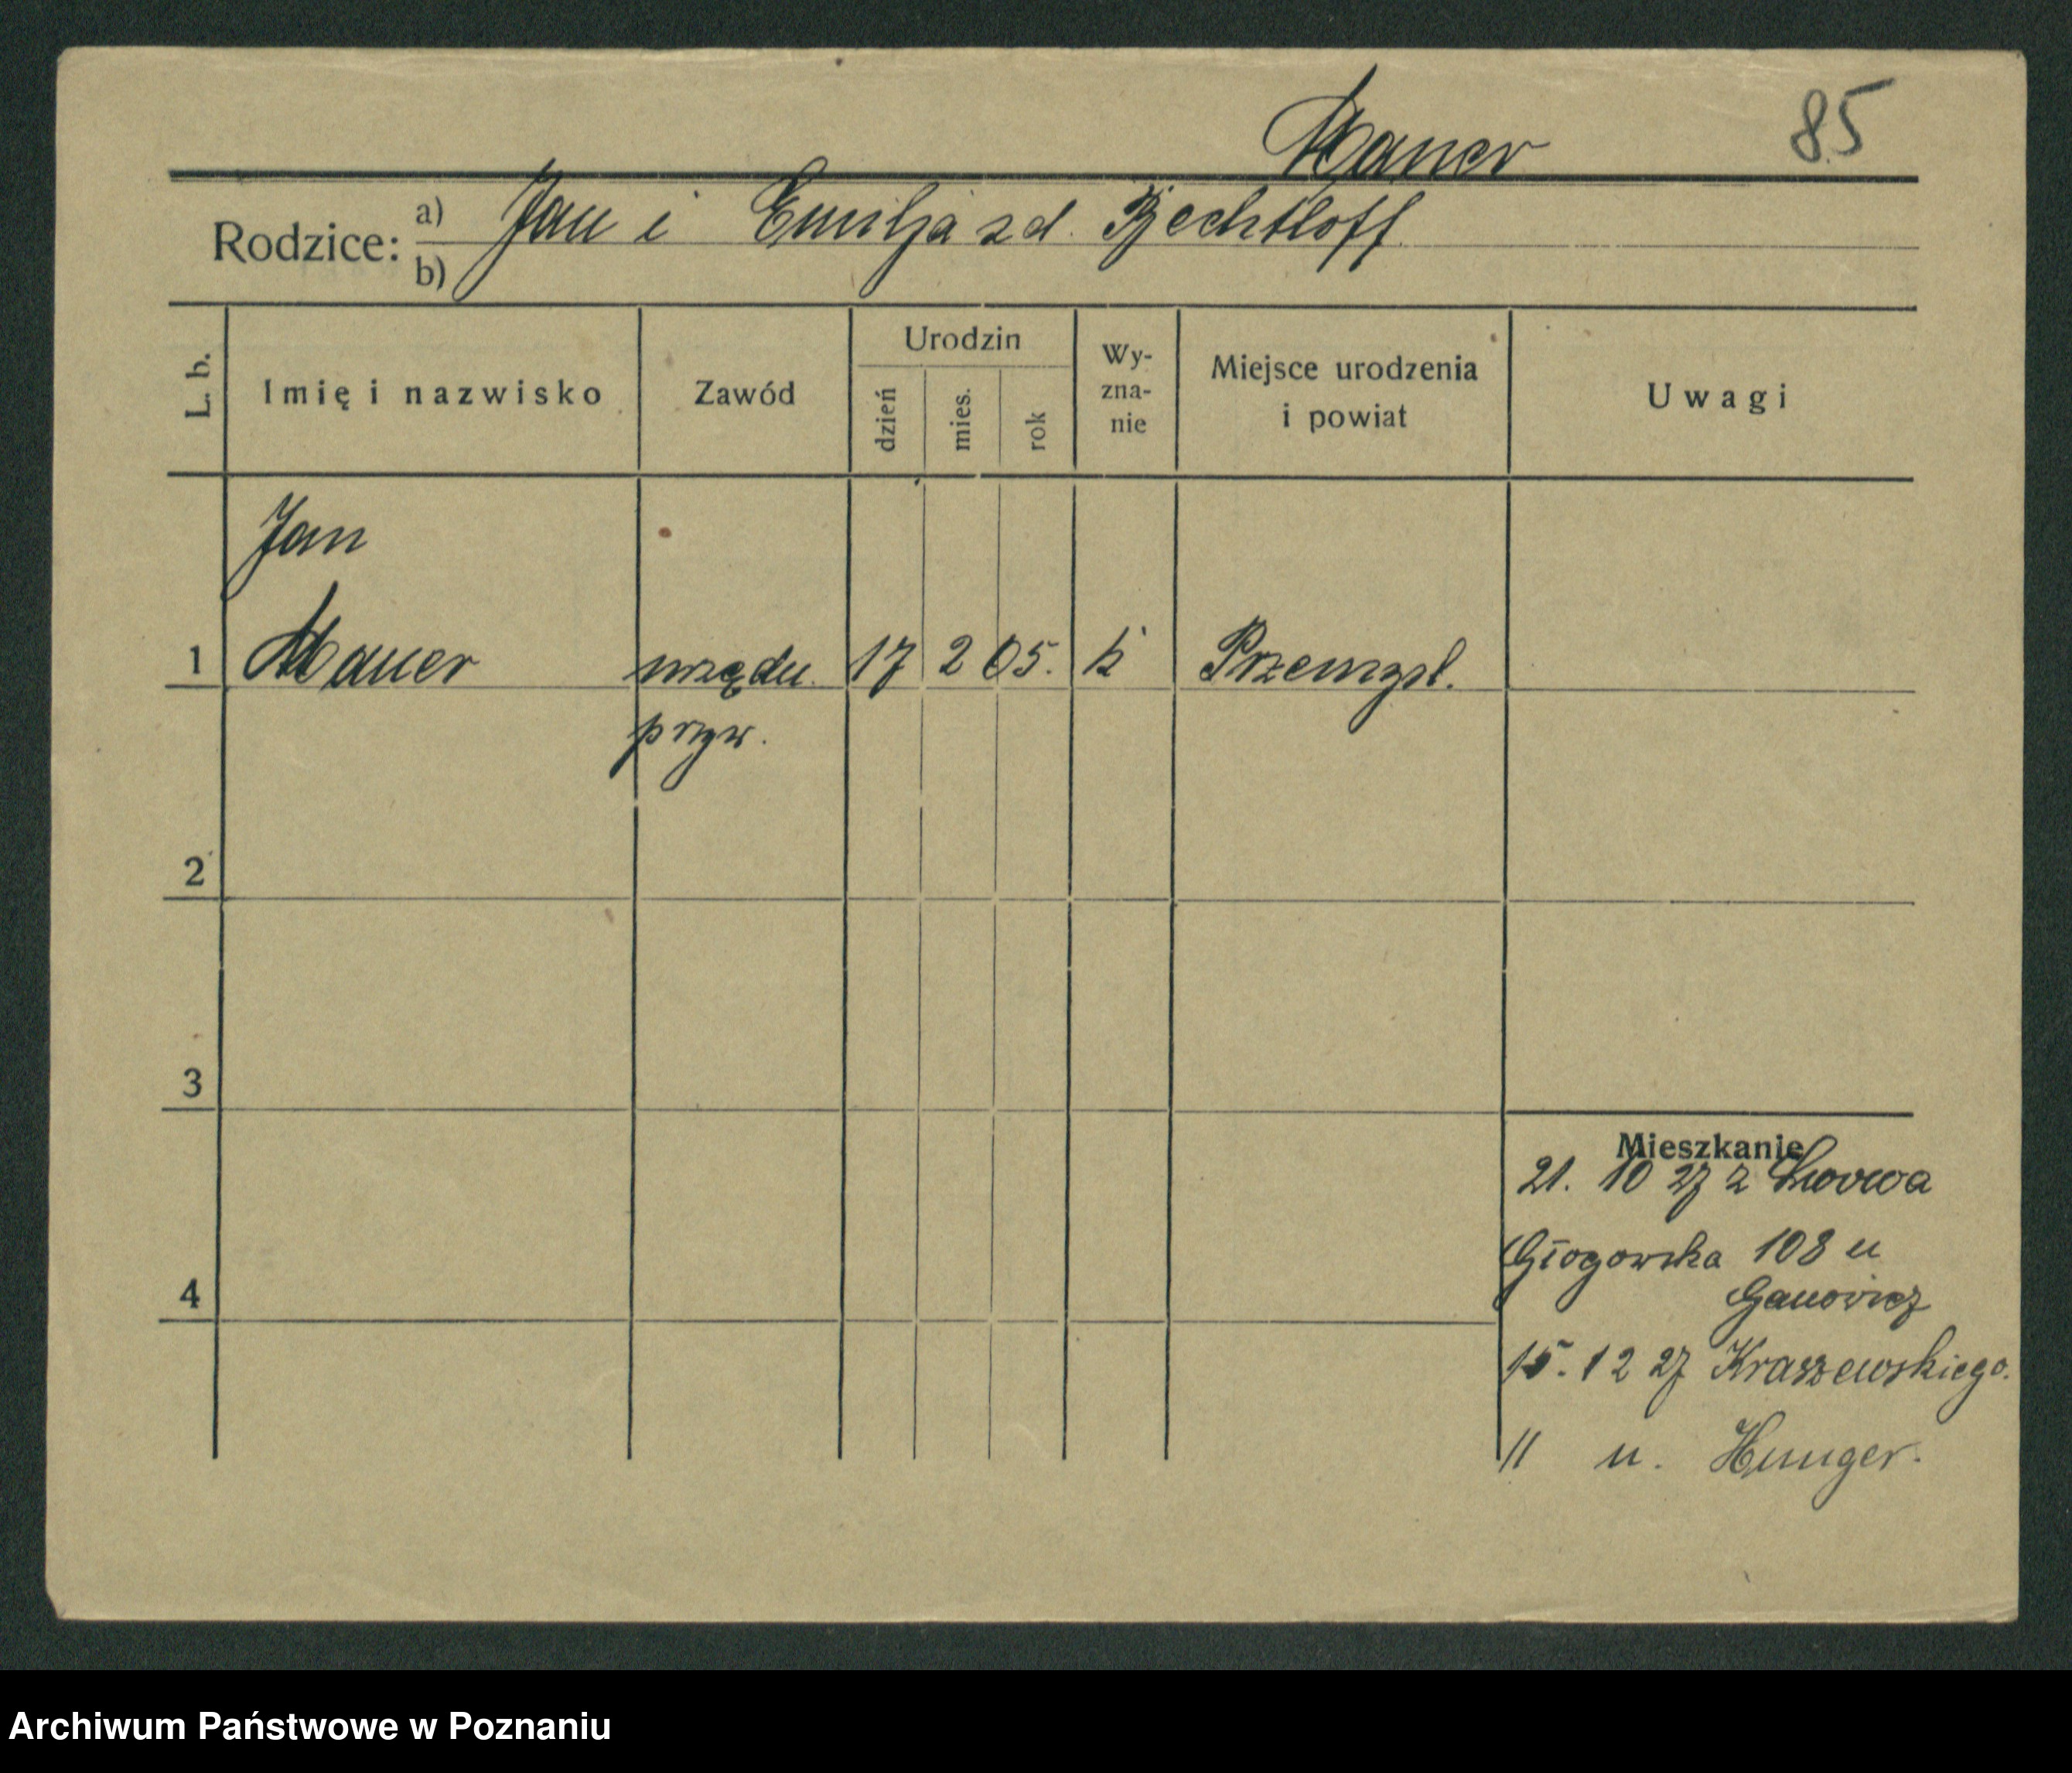 Mauer 85
Rodzice: a) Jan i Emilja z d. Bechtloff
b)
L. b. Imię i nazwisko Zawód Urodzin dzień mies. rok Wy-zna-nie Miejsce urodzenia i powiat Uwagi
Jan
1 Mauer urzędn. 17 2 05. k Przemyśl.
pryw.
2
3
4
Mieszkanie
21. 10 27 z Lwowa
Głogowska 108 u
Ganowicz
15. 12 27 Kraszewskiego.
11 u. Hunger.
Archiwum Państwowe w Poznaniu